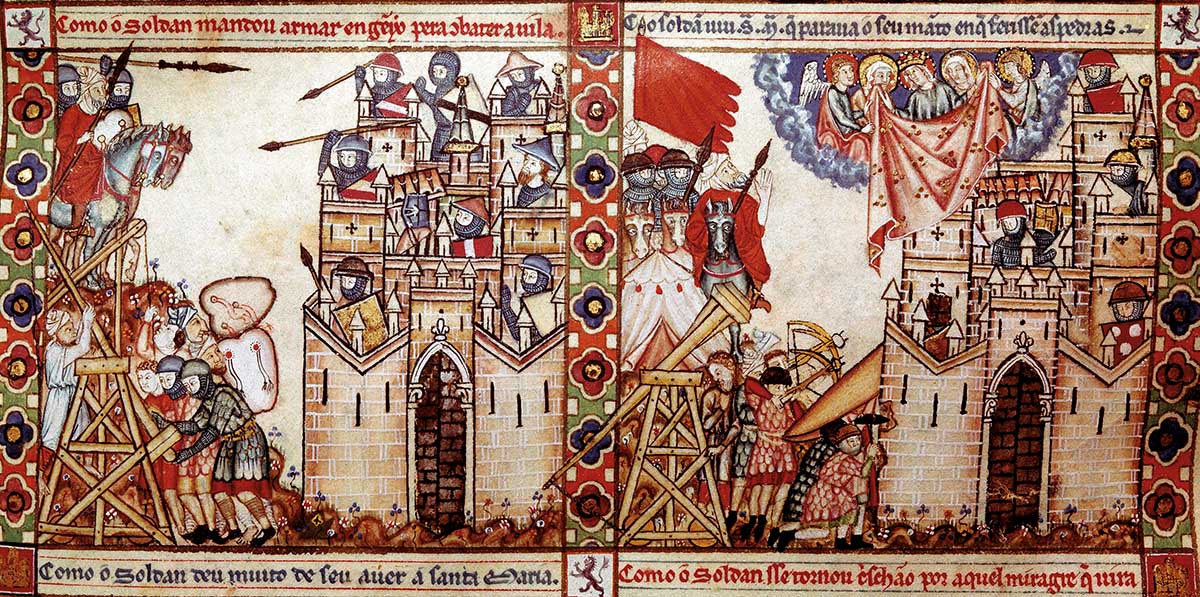 Como ó Soldan mandou armar en gẽyo pera cõbater a uila.
Cõ o soldã uiu S. M. q̃ paraua o seu mãto en q̃ ferissẽ as pedras.
Como ó Soldan deu muito de seu auer a santa Maria.
Como ó Soldan sse tornou c̃schão por aquel miragre q̃ uira